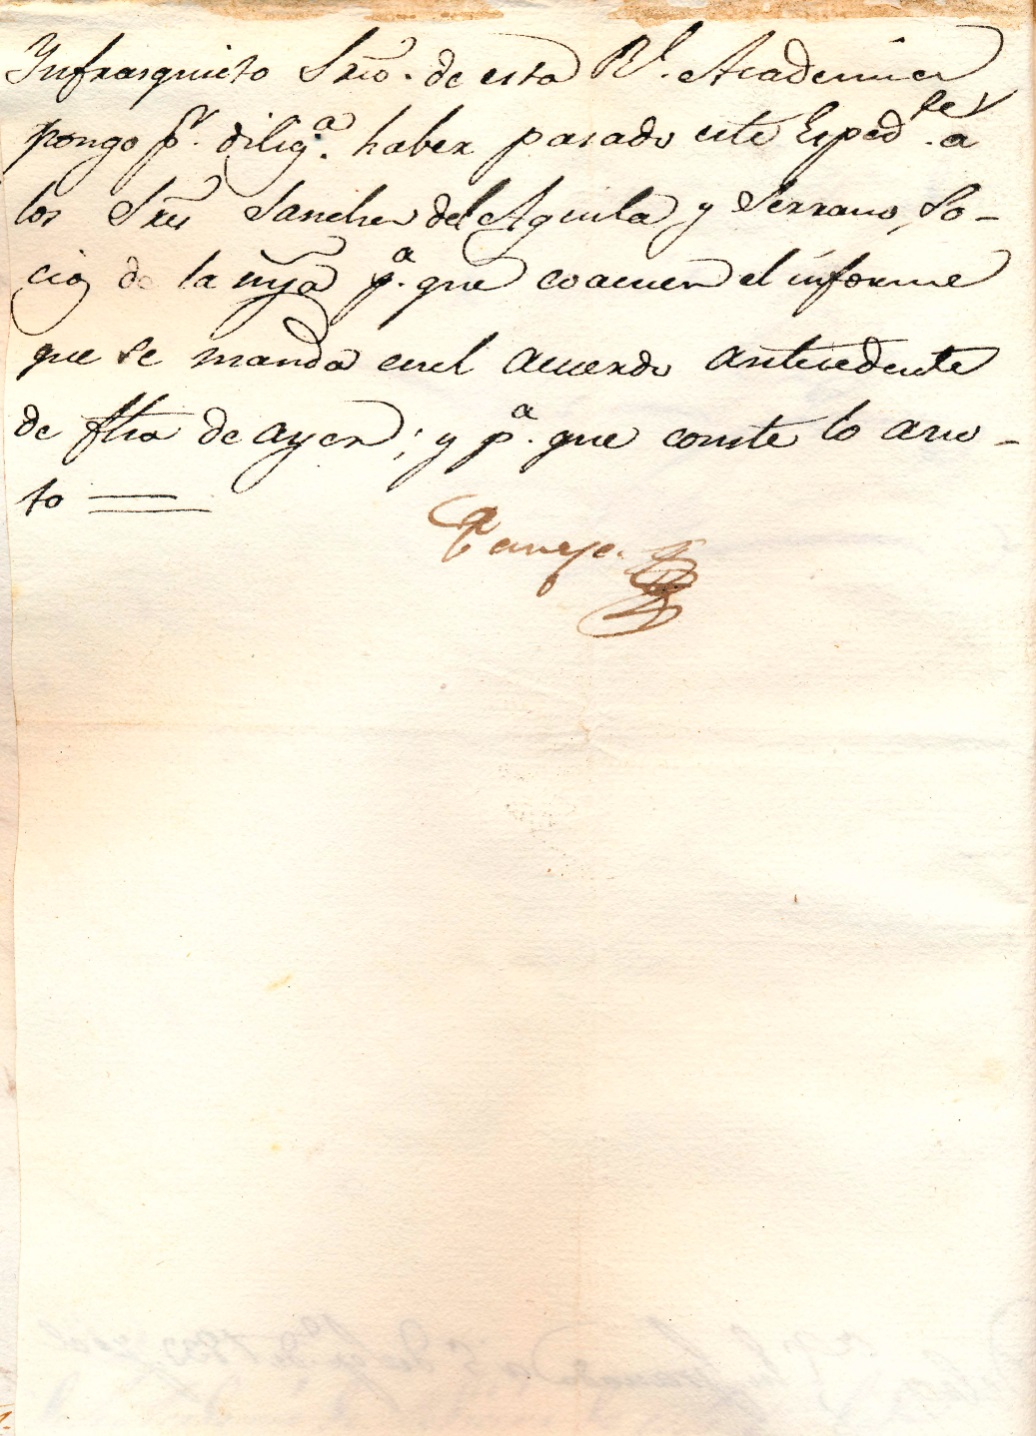 Infrasquito Srio. de esta Rl. Academia
pongo pr. diliga. haber pasado este Espedte. a
los Sres Sanchez del Aguila y Serrano, So-
cios de la mya pa. que evacuen el informe
que se manda en el acuerdo antecedente
de fha de ayer; y pa. que conste lo ano-
to